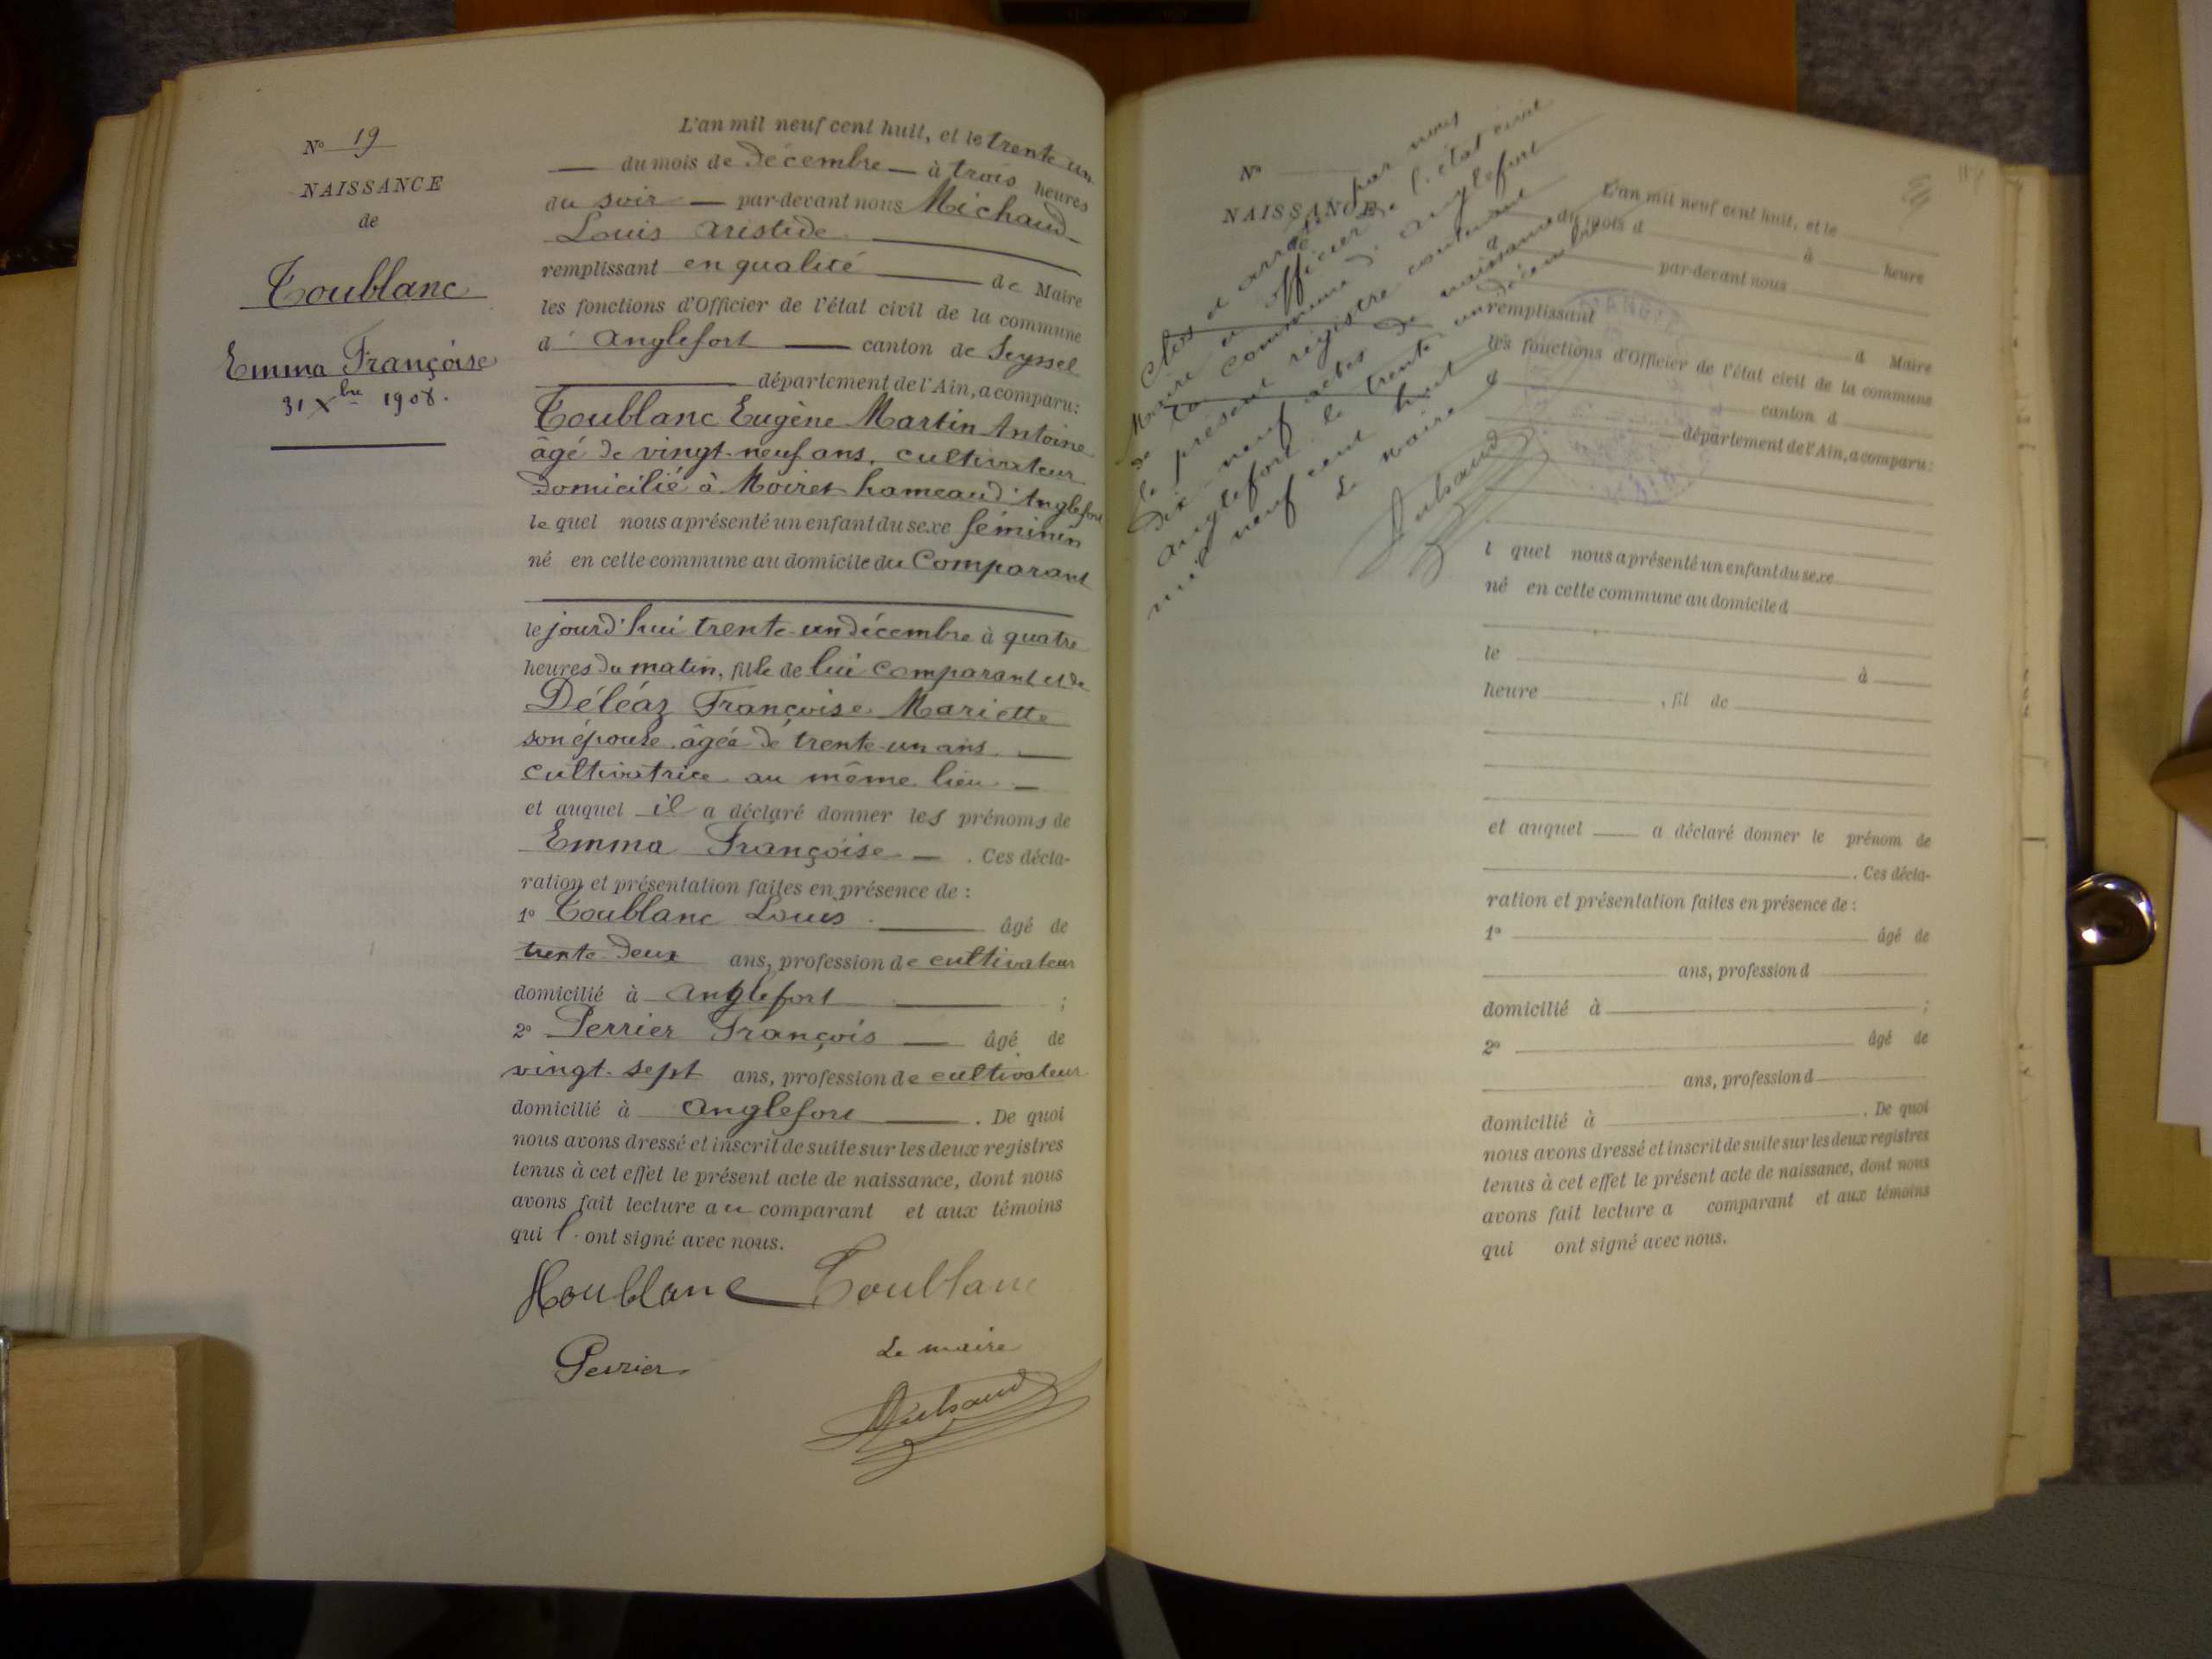 N° 19
NAISSANCE
de
Toublanc
Emma Françoise
31 Xbre 1908.
L'an mil neuf cent huit, et le trente un
— du mois de décembre — à trois heures
du soir — par-devant nous Michaud
Louis Aristide
remplissant en qualité — de Maire
les fonctions d'Officier de l'état civil de la commune
d' Anglefort — canton de Seyssel
département de l'Ain, a comparu:
Toublanc Eugène Martin Antoine
âgé de vingt-neuf ans, cultivateur
domicilié à Moiret hameau d'Anglefort
le quel nous a présenté un enfant du sexe féminin
né en cette commune au domicile du Comparant
le jourd'hui trente-un décembre à quatre
heures du matin, fille de lui comparant et de
Déléaz Françoise Mariette
son épouse, âgée de trente-un ans —
cultivatrice au même lieu —
et auquel il a déclaré donner les prénoms de
Emma Françoise — . Ces décla-
ration et présentation faites en présence de :
1° Toublanc Louis — âgé de
trente-deux ans, profession de cultivateur
domicilié à Anglefort — ;
2° Perrier François — âgé de
vingt-sept ans, profession de cultivateur
domicilié à Anglefort — . De quoi
nous avons dressé et inscrit de suite sur les deux registres
tenus à cet effet le présent acte de naissance, dont nous
avons fait lecture au comparant et aux témoins
qui l'ont signé avec nous.
Toublanc Toublanc
Perrier
Le maire
Michaud
Clos et arrêté par nous
Maire et officier de l'état civil
de la commune d'Anglefort
le présent registre contenant
dix-neuf actes de naissance à
Anglefort le trente un décembre
mil neuf cent huit
Le Maire
Michaud
N°
NAISSANCE
de
L'an mil neuf cent huit, et le
du mois d à heure
par-devant nous
remplissant
d Maire
les fonctions d'Officier de l'état civil de la commune
d canton d
département de l'Ain, a comparu:
l quel nous a présenté un enfant du sexe
né en cette commune au domicile d
le à
heure , fil de
et auquel a déclaré donner le prénom de
. Ces décla-
ration et présentation faites en présence de :
1° âgé de
ans, profession d
domicilié à ;
2° âgé de
ans, profession d
domicilié à . De quoi
nous avons dressé et inscrit de suite sur les deux registres
tenus à cet effet le présent acte de naissance, dont nous
avons fait lecture a comparant et aux témoins
qui ont signé avec nous.